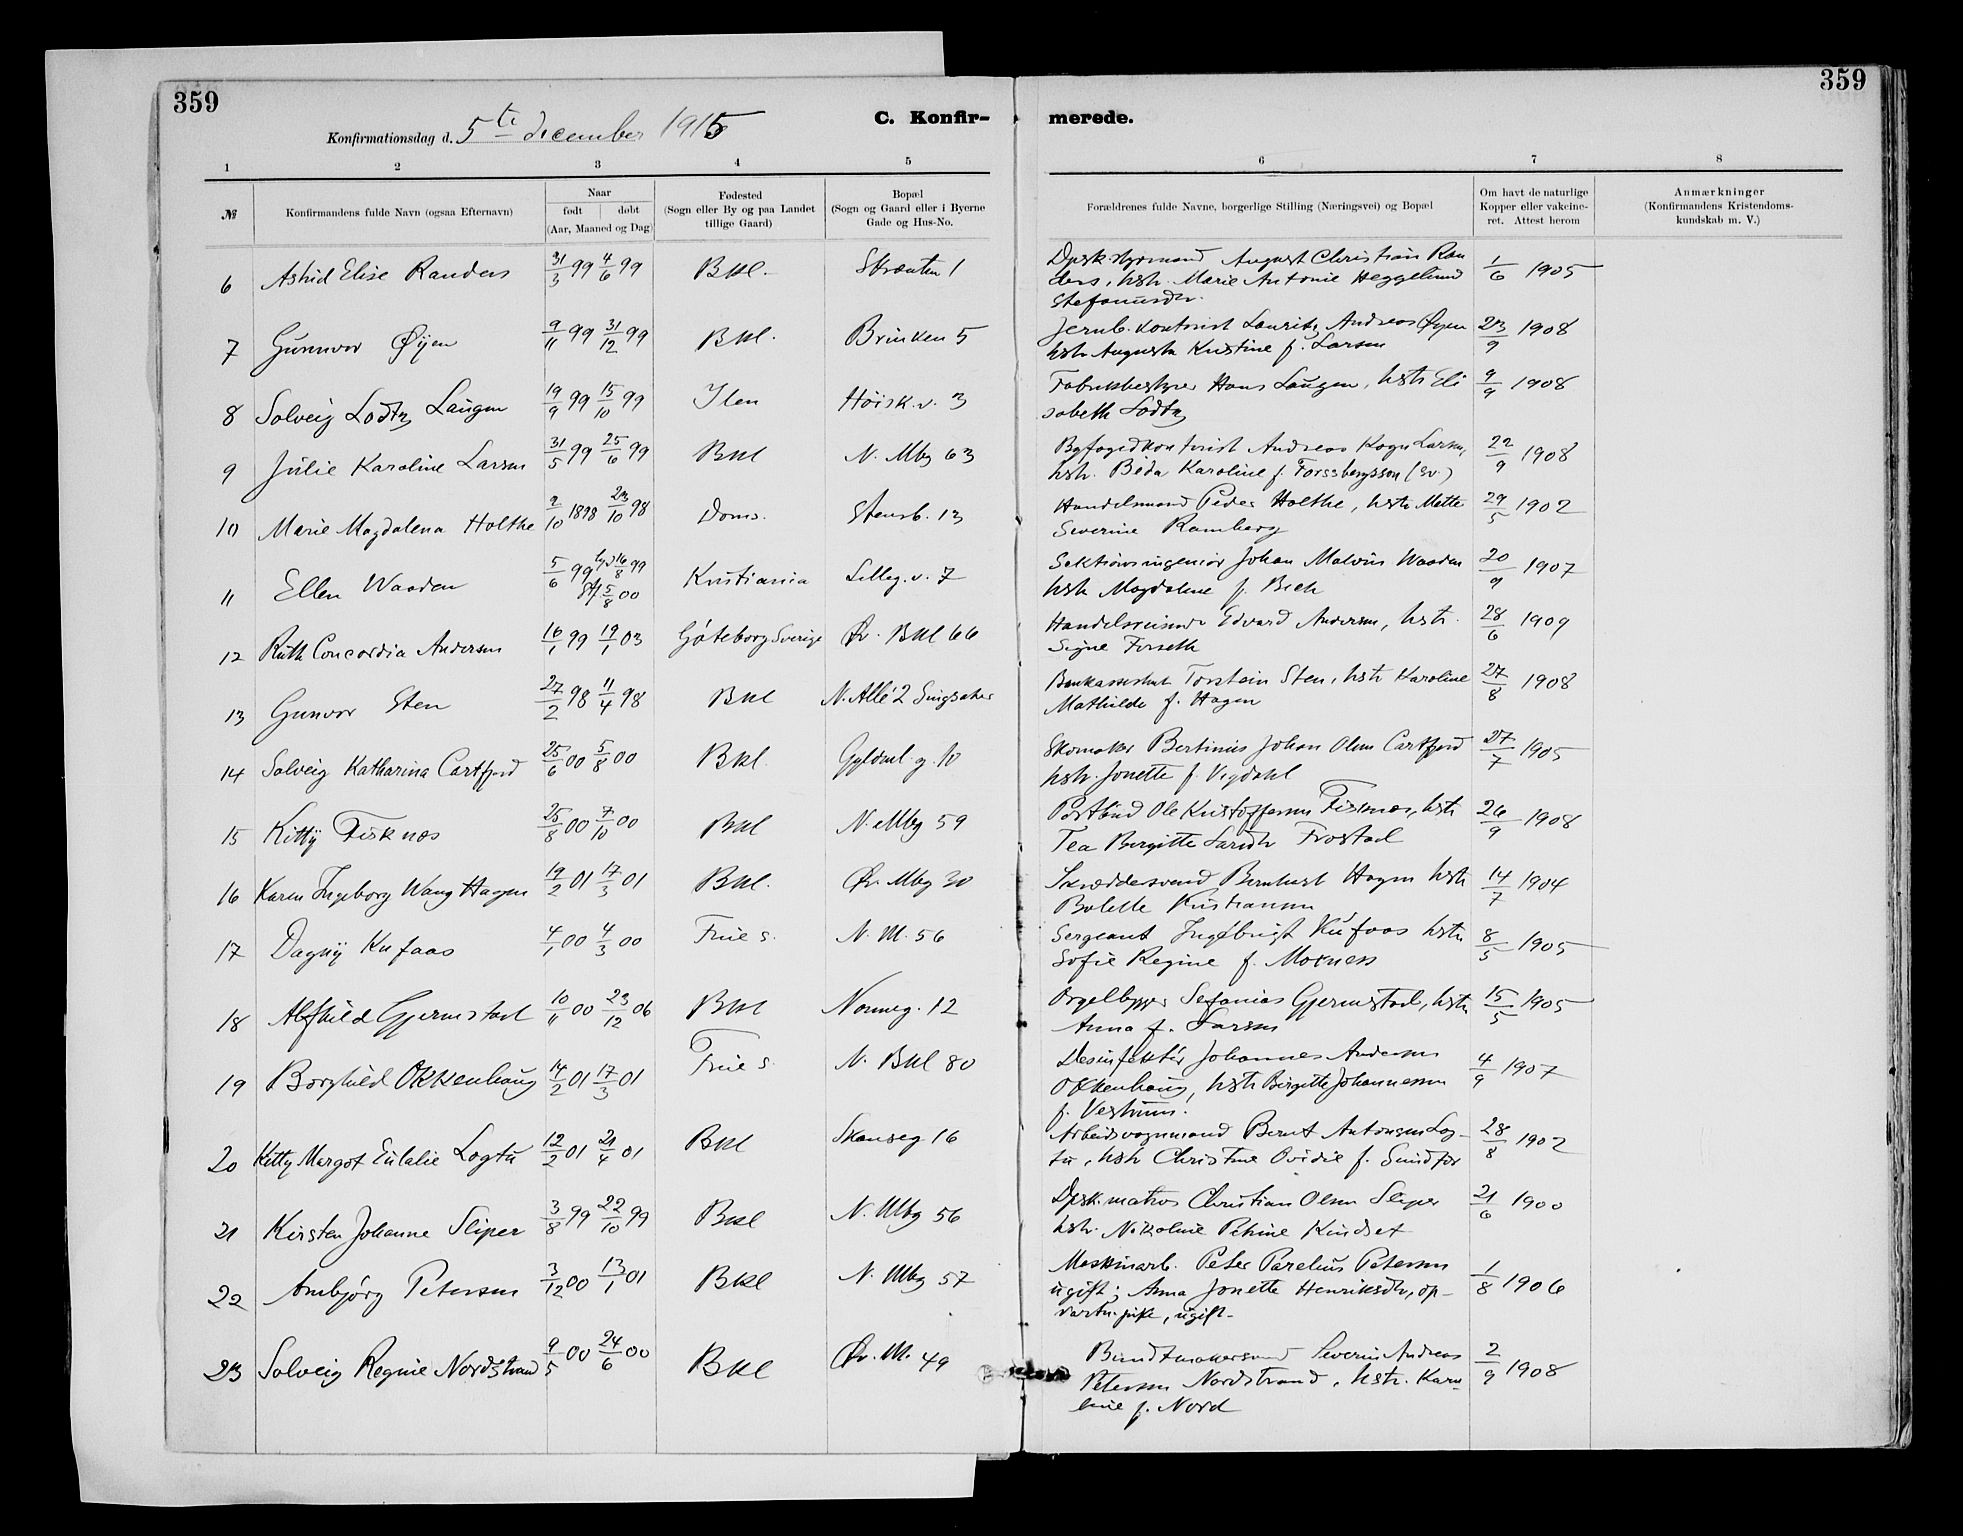 359
359
Konfirmationsdag d. 5te december 1915
C. Konfir-
merede.
1 2 3 4 5 6 7 8
№
Konfirmandens fulde Navn (ogsaa Efternavn)
Naar
født døbt
(Aar, Maaned og Dag)
Fødested
(Sogn eller By og paa Landet
tillige Gaard)
Bopæl
(Sogn og Gaard eller i Byerne
Gade og Hus-No.
Forældrenes fulde Navne, borgerlige Stilling (Næringsvei) og Bopæl
Om havt de naturlige
Kopper eller vakcine-
ret. Attest herom
Anmærkninger
(Konfirmandens Kristendoms-
kundskab m. V.)
6 Astrid Elise Randers 31/3 99 4/6 99 Bkl. Skrænten 1 August Christian Ran
ders, hstr. Marie Antonie Heggelund 1/6 1905
7 Gunnvor Øijen 9/11 99 31/12 99 Bkl. Brinken 5 Jernb. kontorist Lauritz Andreas Øyen 23/9 1908
hstr Augusta Kristine f. Larsen
8 Solveig Lodtz Laugen 19/9 99 15/10 99 Ilen Høisk.v. 3 Fabrikbestyrer Hans Laugen, hstr Eli 9/9 1908
sabeth Lodtz
9 Julie Karoline Larsen 31/5 99 25/6 99 Bkl N. Mbg 63 Byfogedkontorist Andreas Larsen, 22/9 1908
hstr. Beda Karoline f. Forssbergsson (Sv.)
10 Marie Magdalena Holthe 2/10 1898 23/10 98 Doms. Stensb. 13 Handelsmand Peder Holthe, hstr Mette 29/5 1902
Severine Ramberg
11 Ellen Waaden 5/6 99 16/8 99 Kristiania Lilleg.v. 7 Sektionsingeniør Johan Malvin Waaden 20/9 1907
5/8 00 hstr Magdalene f. Bieh
12 Ruth Concordia Andersen 16/1 99 19/1 03 Göteborg Sverige Øv. Bkl 66 Handelsreisende Edvard Andersen, hstr. 28/6 1909
Signe Forseth
13 Gunvor Sten 27/2 98 11/4 98 Bkl N. Allé 2 Singsaker Torstein Sten, hstr Karoline 27/8 1908
Mathilde f. Hagen
14 Solveig Katharina Cartfjord 25/6 00 5/8 00 Bkl. Gyldenl.g. 10 Skomaker Bertinius Johan Olsen Cartfjord 27/7 1905
hstr. Jonette f. Vigdahl
15 Kitty Fisknes 25/8 00 7/10 00 Bkl N. Mbg 59 Postbud Ole Kristoffersen Fisknes, hstr 26/9 1908
Tea Bergitte Larsdtr Frostad
16 Karen Ingeborg Wang Hagen 19/2 01 17/3 01 Bkl. Øv. Mbg 30 Skræddersvend Bernhart Hagen hstr 14/7 1904
Bolette Kristiansen
17 Dagny Kufaas 4/1 00 4/3 00 Frue s. N. M. 56 Sergeant Ingebrigt Kufaas hstr 8/5 1905
Sofie Regine f. Moxness
18 Alfhild Gjermstad 10/11 00 23/12 06 Bkl Nonneg. 12 Orgelbygger Sefanias Gjermstad, hstr 15/5 1905
Anna f. Larsen
19 Borghild Okkenhaug 14/2 01 17/3 01 Frue s. N. Bkl 80 Desinfektør Johannes Andersen 4/9 1907
Okkenhaug, hstr Birgitte Johannesen
20 Kitty Margot Eulalie Logtu 12/2 01 21/4 01 Bkl Skanseg 16 Arbeidsvognmand Bernt Antonsen Log- 28/8 1902
tu, hstr Christine Ovidie f. Sundfor
21 Kirsten Johanne Sliper 3/8 99 22/10 99 Bkl N. Mbg 56 Dpsk. matros Christian Olsen Sliper 21/6 1900
hstr. Nikoline Petrine Kindset
22 Arnbjørg Petersen 3/12 00 13/1 01 Bkl N. Mbg 57 Maskinarb. Peter Parelius Petersen
ugift; Anna Jonette Henriksdtr, op- 1/8 1906
vartn.pike, ugift-
23 Solveig Regine Nordstrand 9/5 00 24/6 00 Bkl Øv. M. 49 Bundtmakersvend Severin Andreas 2/9 1908
Petersen Nordstrand, hstr. Karo-
line f. Nord